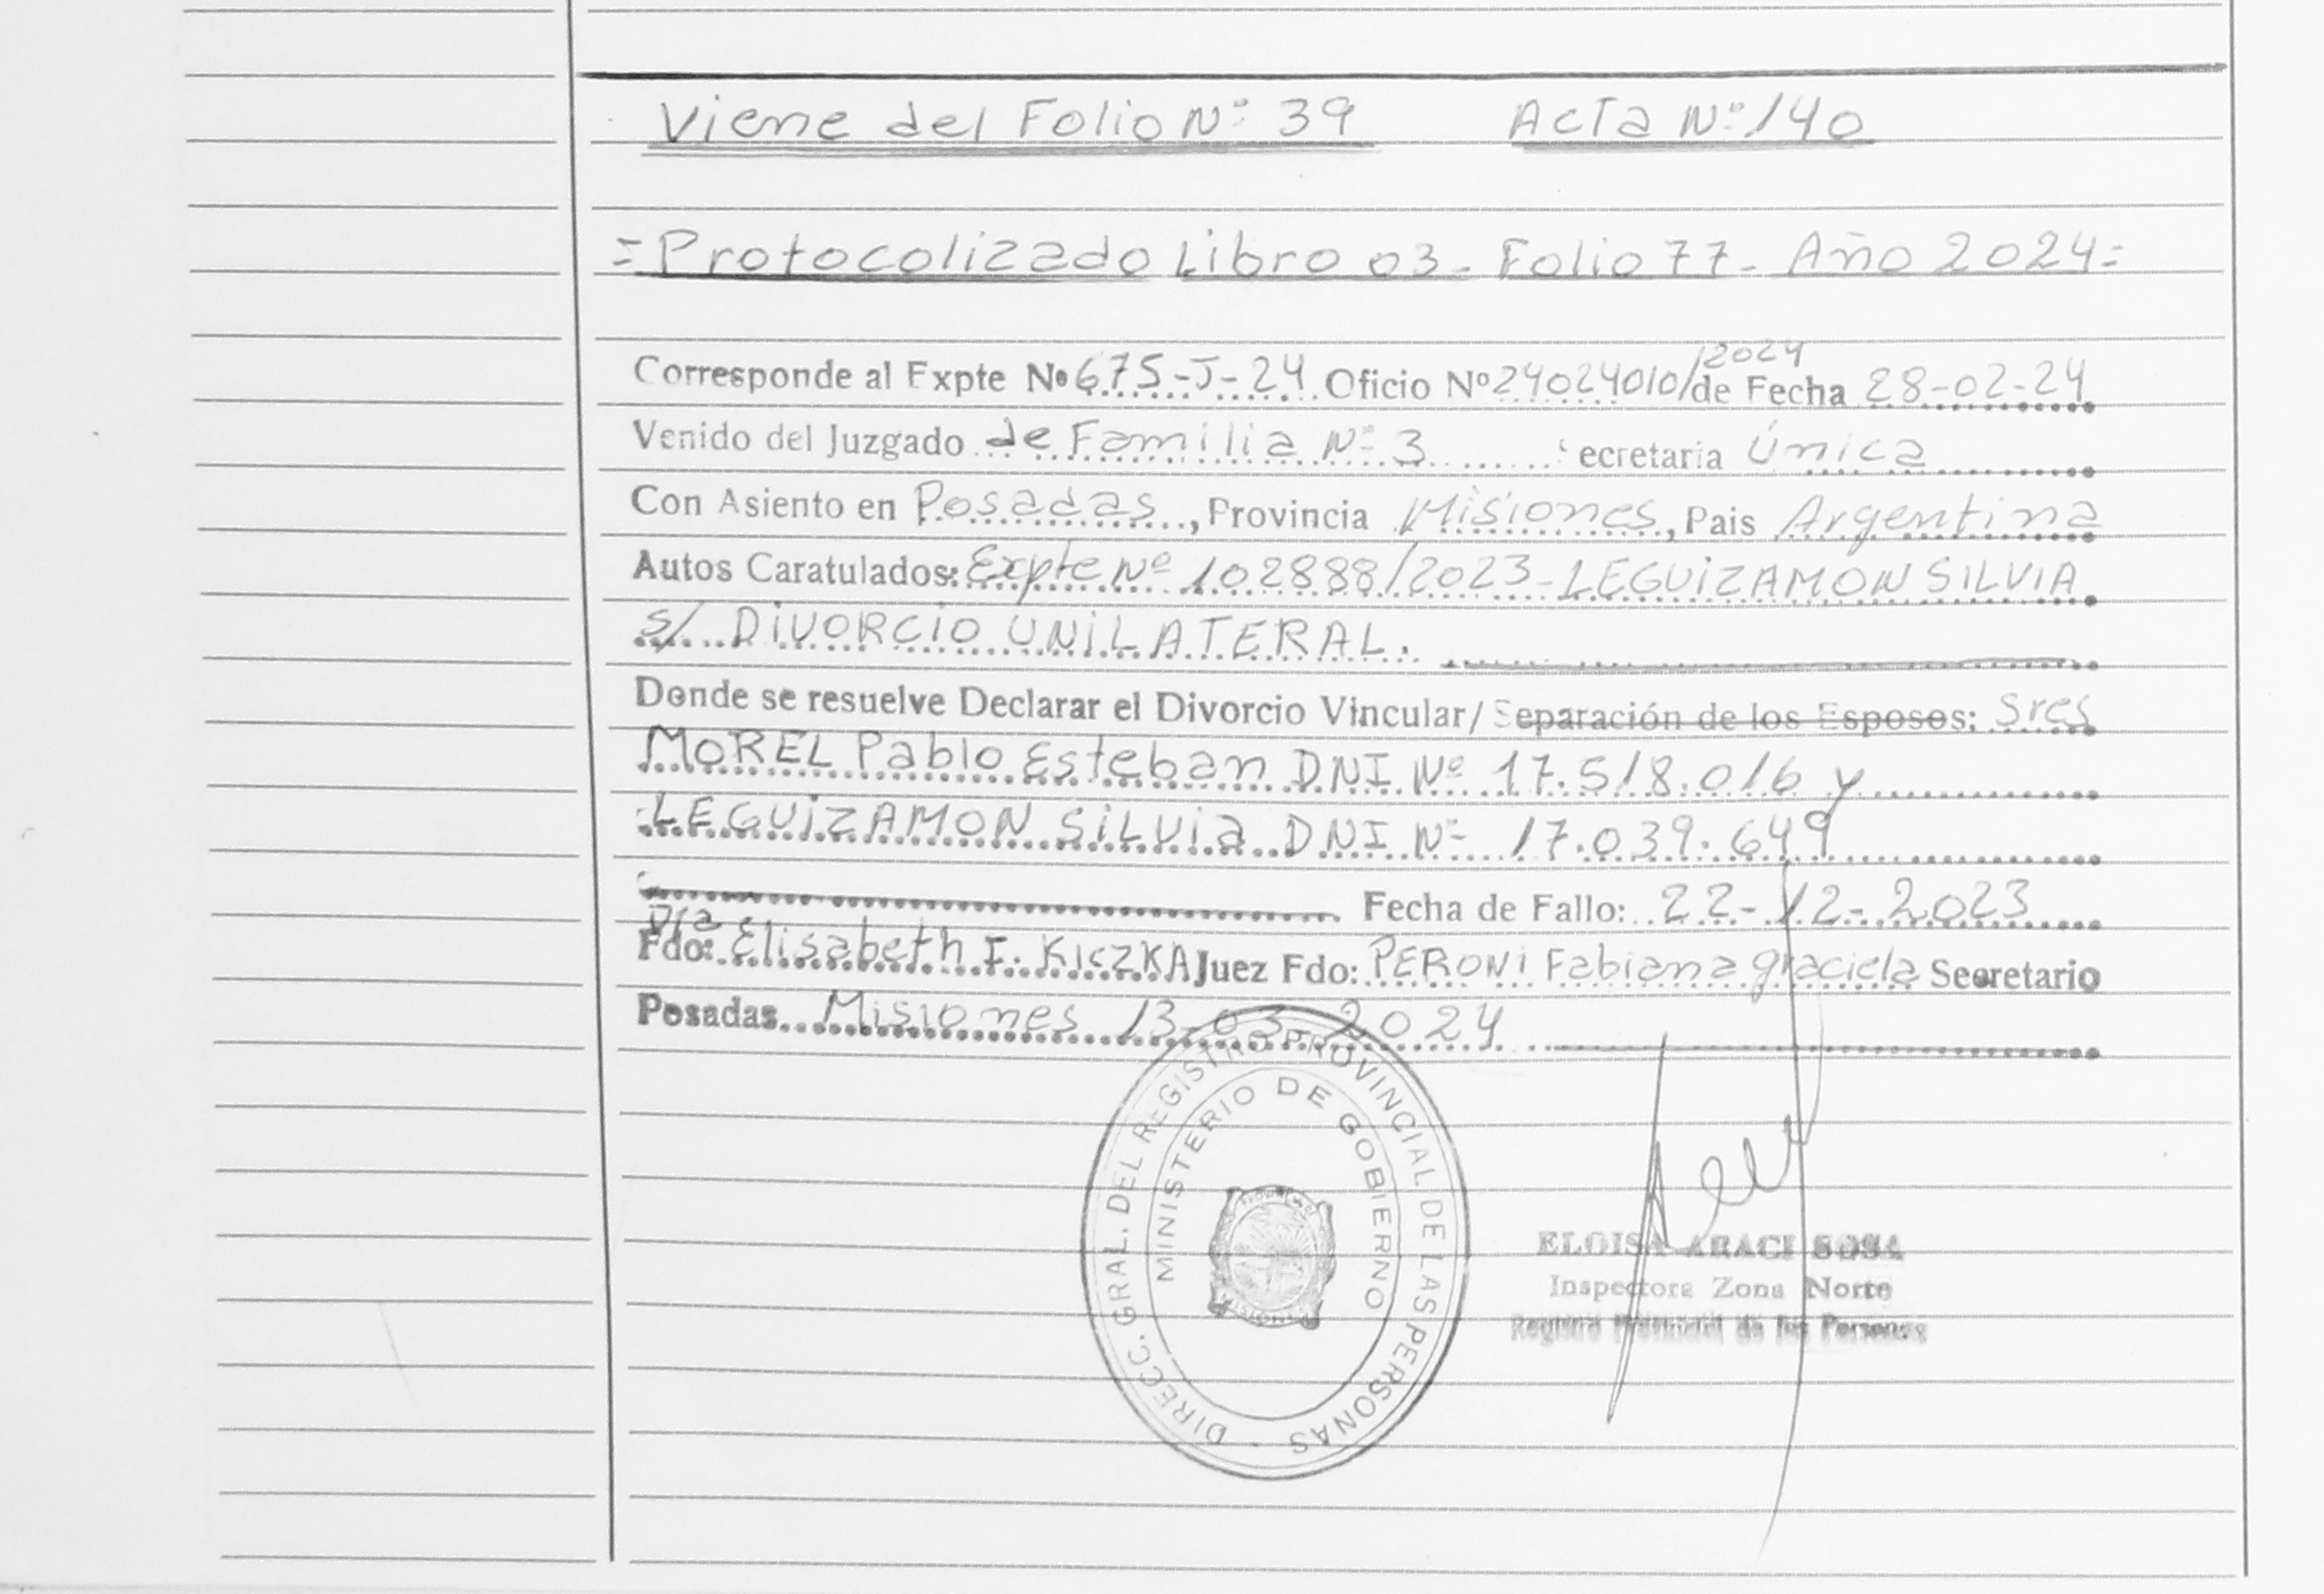 Viene del Folio Nº 39 Acta Nº 140
=Protocolizado Libro 03- Folio 77- Año 2024=
Corresponde al Expte Nº 675-J-24 Oficio Nº 24024010/2024 de Fecha 28-02-24
Venido del Juzgado de Familia Nº 3 Secretaría Única
Con Asiento en Posadas, Provincia Misiones, Pais Argentina
Autos Caratulados: Expte Nº 102888/2023-LEGUIZAMON SILVIA
s/ DIVORCIO UNILATERAL.
Donde se resuelve Declarar el Divorcio Vincular/ Separación de los Esposos: Sres
MOREL Pablo Esteban DNI Nº 17.518.016 y
LEGUIZAMON SILVIA DNI Nº 17.039.649
Fecha de Fallo: 22-12-2023
Dra
Fdo: Elisabeth I. KICZKA Juez Fdo: PERONI Fabiana graciela Secretario
Posadas. Misiones 13-03-2024
DIRECC. GRAL. DEL REGISTRO PROVINCIAL DE LAS PERSONAS -
MINISTERIO DE GOBIERNO
ELOISA ARACI SOSA
Inspectora Zona Norte
Registro Provincial de las Personas